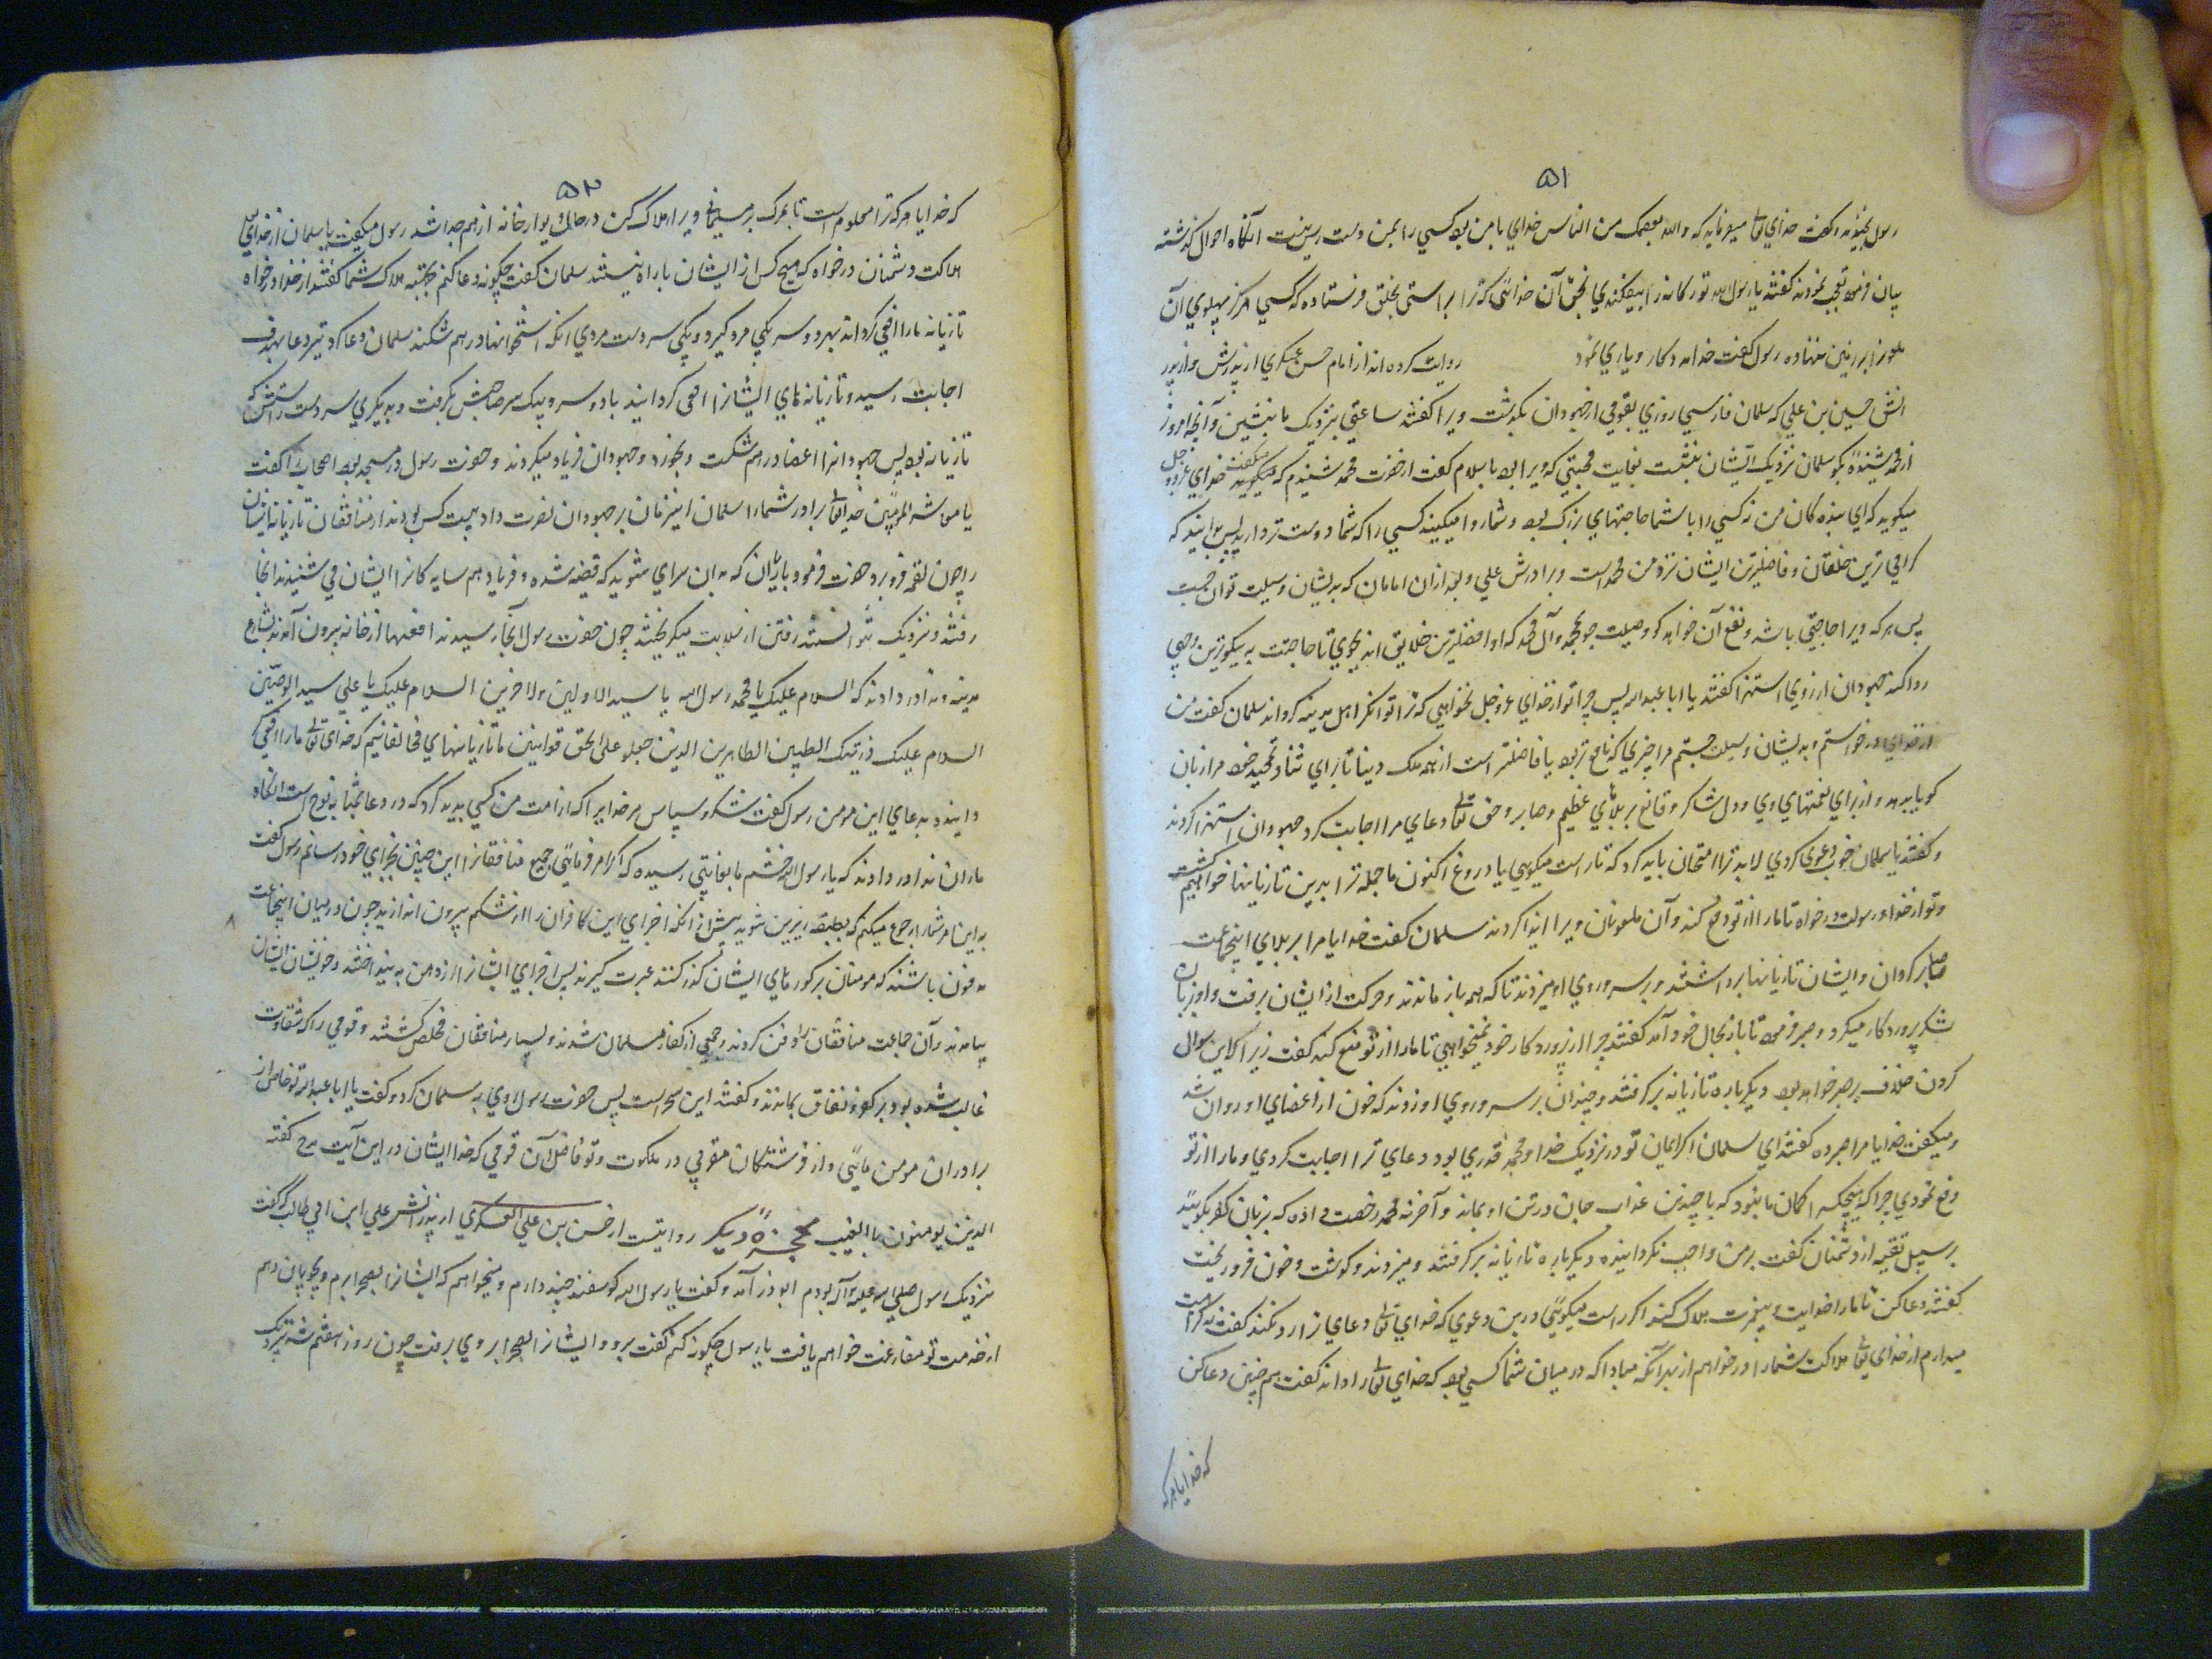 ۵۱
رسول بخندید و گفت خدای تعالی میفرماید که والله یعصمک من الناس خدای با من بود کسی را بمن دست رس نیست آنگاه احوال گذشته
بیان فرمود تعجب نمودند گفتند یا رسول الله تو رکانه را بیفکندی بحق آن خدائی که ترا براستی بخلق فرستاده که کسی هرگز پهلوی آن
ملعون را بر زمین ننهاده رسول گفت خدا مددکار و یاری نمود روایت کرده اند از امام حسن عسکری از پدرش و از پدر
انش حسین بن علی که سلمان فارسی روزی بقومی از جهودان بگذشت ویرا گفتند ساعتی بنزدیک ما بنشین و آنچه امروز
از محمد شنیدهٔ بگو سلمان نزدیک ایشان بنشست بغایت محبتی که ویرا بود باسلام گفت از حضرت محمد شنیدم که میگفت خدای عز و جل
میگوید که ای بنده کان من نه کسی را با شما حاجتهای بزرگ بود و شما روا میکنید کسی را که شما دوست تر دارید پس بدانید که
گرامی ترین خلقان و فاضلترین ایشان نزد من محمد است و برادرش علی و بعد ازان امامان که بدیشان وسیلت توان جست
پس هر که ویرا حاجتی باشد و نفع آن خواهد کو وسیلت جو بمحمد و آل محمد که او افضلترین خلایق اند بجوی تا حاجت به نیکوترین وجهی
روا کند جهودان از روی استهزا گفتند یا ابا عبدالله پس چرا تو از خدای عز و جل نخواهی که ترا توانگر اهل مدینه گرداند سلمان گفت من
از خدای درخواستم و بدیشان وسیلت جستم مرا چیزی که نافع تر بود یا فاضلتر است از همه ملک دنیا تا برای ثنا و تمجید خود مرا زبان
گویا بدهد و از برای نعمتهای وی و دل شاکر و قانع بر بلاهای عظیم و صابر و حق تعالی دعای مرا اجابت کرد جهودان استهزا کردند
و گفتند یا سلمان خوب دعوی کردی لابد ترا امتحان باید کرد که تا راست میگویی یا دروغ اکنون ما جمله ترا بدین تازیانها خواهیم کشت
و تو از خدا و رسولت درخواه تا ما را از تو دفع کند و آن ملعونان ویرا ایذا کردند سلمان گفت خدایا مرا بر بلای این جماعت
صابر گردان و ایشان تازیانها برداشتند و بر سر و روی او میزدند تا که همه باز ماندند و حرکت از ایشان برفت و او بزبان
شکر پروردگار میکرد و صبر فرمود تا باز بحال خود آمد گفتند چرا از پروردگار خود نمیخواهی تا ما را از تو منع کند گفت زیرا که این سوال
کردن خلاف بر صبر خواهد بود دیگر باره تازیانه برگرفتند و چندان بر سر و روی او زدند که خون از اعضای او روان شد
و میگفت خدایا مرا صبر ده گفتند ای سلمان اگر ایمان تو در نزدیک خدا و محمد قدری بود دعای ترا اجابت کردی و ما را از تو
دفع نمودی چرا که هیچکس را گمان ما نبود که با چندین عذاب جان در تن او بماند و آخر نه محمد رخصت داده که بزبان کفر بگوئید
بر سبیل تقیه از دشمنان گفت بر من واجب نگردانیده دیگر باره تازیانه برگرفتند و میزدند و گوشت و خون فرو ریخت
گفتند دعا کن تا ما را خدایت و پیغمبرت هلاک کند اگر راست میگوئی درین دعوی که خدای تعالی دعای ترا رد نکند گفت نه کراهیت
میدارم از خدای تعالی هلاکت شما را درخواهم از بهر آنکه مبادا که در میان شما کسی بود که خدای تعالی را داند گفت هم چنین دعا کن
که خدایا هرکه
۵۲
که خدایا هر که ترا معلوم است تا بمرگ بر مسلمانی ویرا هلاک کن در حال دیوار خانه از هم جدا شد رسول میگفت یا سلمان از خدای
هلاکت دشمنان درخواه که هیچ کس از ایشان با راه نیستند سلمان گفت چگونه دعا کنم بجهته هلاک شما گفتند از خدا درخواه
تازیانه ما را افعی گرداند بهر دو سر یکی مر گیرد و یکی سر دست مردی آنکه استخوانها در هم شکند سلمان دعا کرد تیر دعا بهدف
اجابت رسید و تازیانه های ایشانرا افعی گردانید با دو سر و بیک سر صاحبش بگرفت و بدیگری سر دست راستش که
تازیانه بود پس جهودانرا اعضا در هم شکست و بخورد و جهودان فریاد میکردند و حضرت رسول در مسجد بود اصحاب را گفت
یا معاشر المؤمنین خدایتعالی برادر شما را سلمان این زمان بر جهودان نصرت داد بیست کس بودند از منافقان تازیانه ایشان
را چون لقمه فرو برد حضرت فرمود با یاران که بدان سرای شوید که قضیه شده و فریاد همسایه کانرا ایشان می شنیدند آنجا
رفتند و نزدیک نتوانستند رفتن از صلابت میگریختند چون حضرت رسول آنجا رسیدند افعیها از خانه بیرون آمدند بشارع
مدینه و ندا در دادند که السلام علیک یا محمد رسول الله یا سید الاولین والاخرین السلام علیک یا علی سید الوصیین
السلام علیک ذریتک الطیبین الطاهرین الذین جعلو علی الخلق قوامین ما تازیانهای منافقانیم که خدای تعالی ما را افعی گر
دانید و بدعای این مومن رسول گفت شکر و سپاس مر خدایرا که از امت من کسی پدید کرد که در دعا بمثابه نوح است آنگاه
ماران ندا در دادند که یا رسول الله خشم ما بغایتی رسیده که اگر امر فرمائی جمیع منافقانرا این چنین بجزای خود رسانیم رسول گفت
به این امر شما را رجوع میکنم که بطبقه زیرین شوید پیش از آنکه اجزای این کافران را از شکم بیرون اندازید چون در میان این جماعت
مدفون باشند که مومنان بر گورهای ایشان گذر کنند عبرت گیرند پس اجزای ایشانرا از دهن به بیند اختند و خویشان ایشان
بیامدند و آن جماعت منافقان را دفن کردند و جمعی از کفار مسلمان شدند و بسیار منافقان مخلص گشتند و قومی را که شقاوت
غالب شده بود بر کفر و نفاق بماندند و گفتند این سحر است پس حضرت رسول روی به سلمان کرد و گفت یا ابا عبدالله تو خاص از
برادران مومن مائی و از فرشتگان مقربی در ملکوت و تو فاضل آن قومی که خدا ایشان در این آیت مدح گفته
الذین یومنون باالغیب معجزهٔ دیگر روایتست از حسن بن علی العسکری از پدرانش علی ابن ابی طالب گفت
نزدیک رسول صلی الله علیه و آله بودم ابوذر آمد و گفت یا رسول الله گوسفند چند دارم و میخواهم که ایشانرا بصحرا برم و بچوپان دهم
از خدمت تو مفارقت خواهم یافت یا رسول چگونه کنم گفت برو و ایشانرا بصحرا بر وی برفت چون روز هفتم شد نزدیک